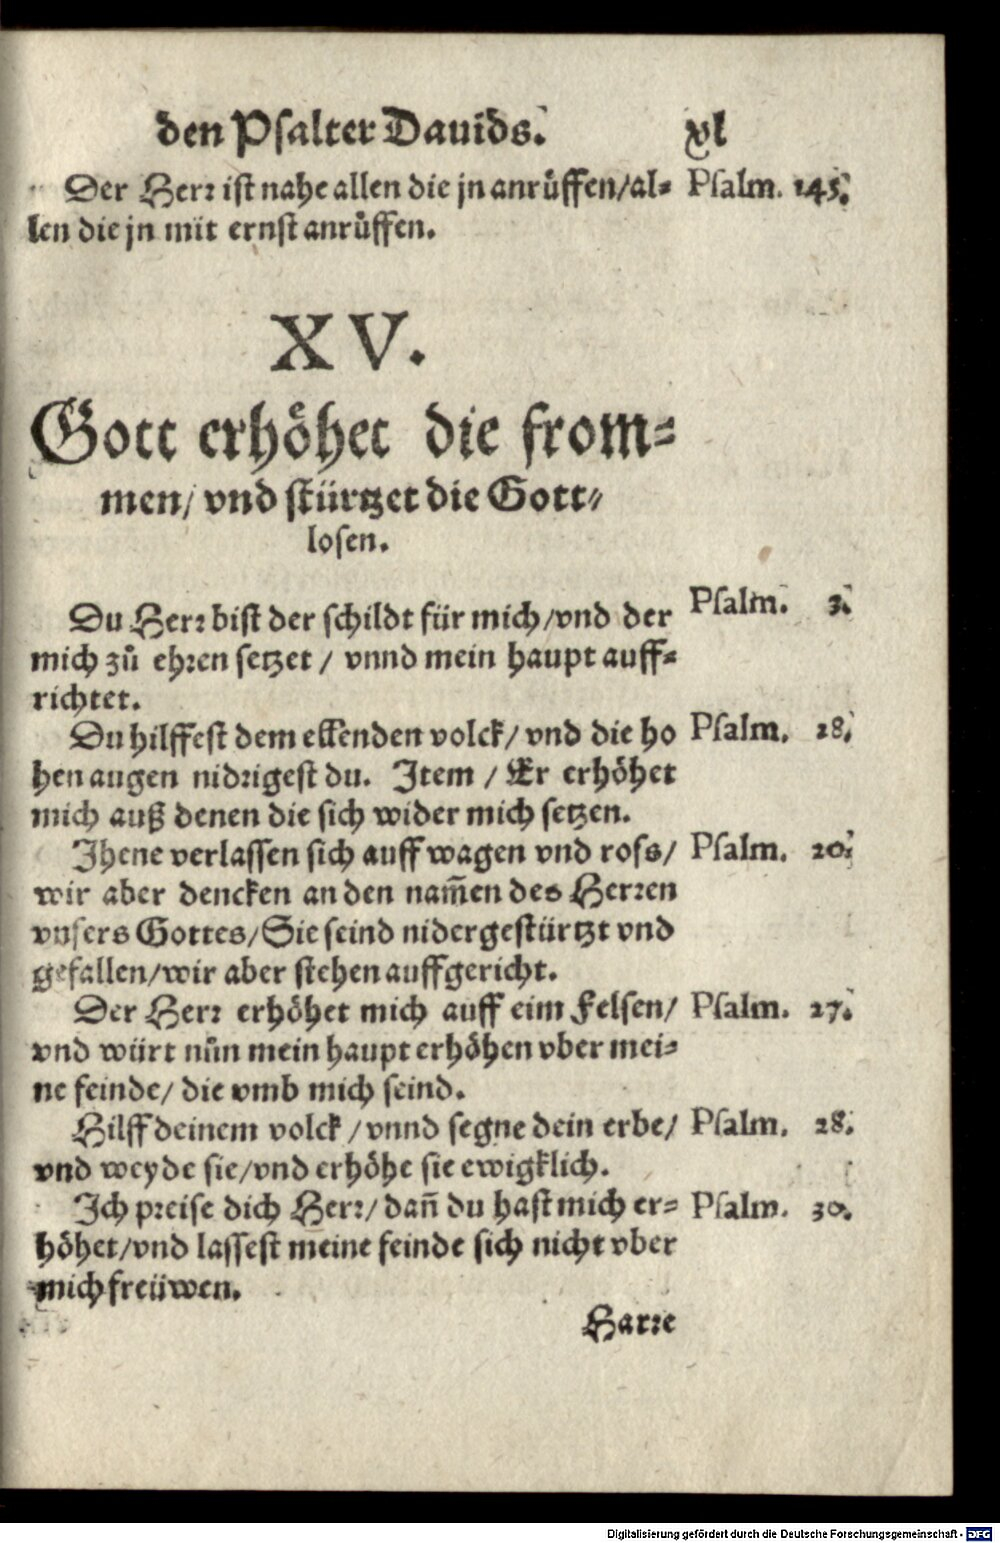 den Psalter Dauids. xl
Der Herr ist nahe allen die jn anrůffen/al- Psalm. 145.
len die jn mit ernst anrůffen.
XV.
Gott erhöhet die from-
men/ vnd stürtzet die Gott-
losen.
Du Herr bist der schildt für mich/vnd der Psalm. 3.
mich zů ehren setzet / vnnd mein haupt auff-
richtet.
Du hilffest dem ellenden volck/ vnd die ho Psalm. 18.
hen augen nidrigest du. Item / Er erhöhet
mich auß denen die sich wider mich setzen.
Jhene verlassen sich auff wagen vnd ross/ Psalm. 20.
wir aber dencken an den nam̄en des Herren
vnsers Gottes/Sie seind nidergestürtzt vnd
gefallen/wir aber stehen auffgericht.
Der Herr erhöhet mich auff eim Felsen/ Psalm. 27.
vnd würt nůn mein haupt erhöhen vber mei-
ne feinde/ die vmb mich seind.
Hilff deinem volck /vnnd segne dein erbe/ Psalm. 28.
vnd weyde sie/vnd erhöhe sie ewigklich.
Ich preise dich Herr/ dan̄ du hast mich er- Psalm. 30.
höhet/vnd lassest meine feinde sich nicht vber
mich freüwen.
Harre
Digitalisierung gefördert durch die Deutsche Forschungsgemeinschaft - DFG